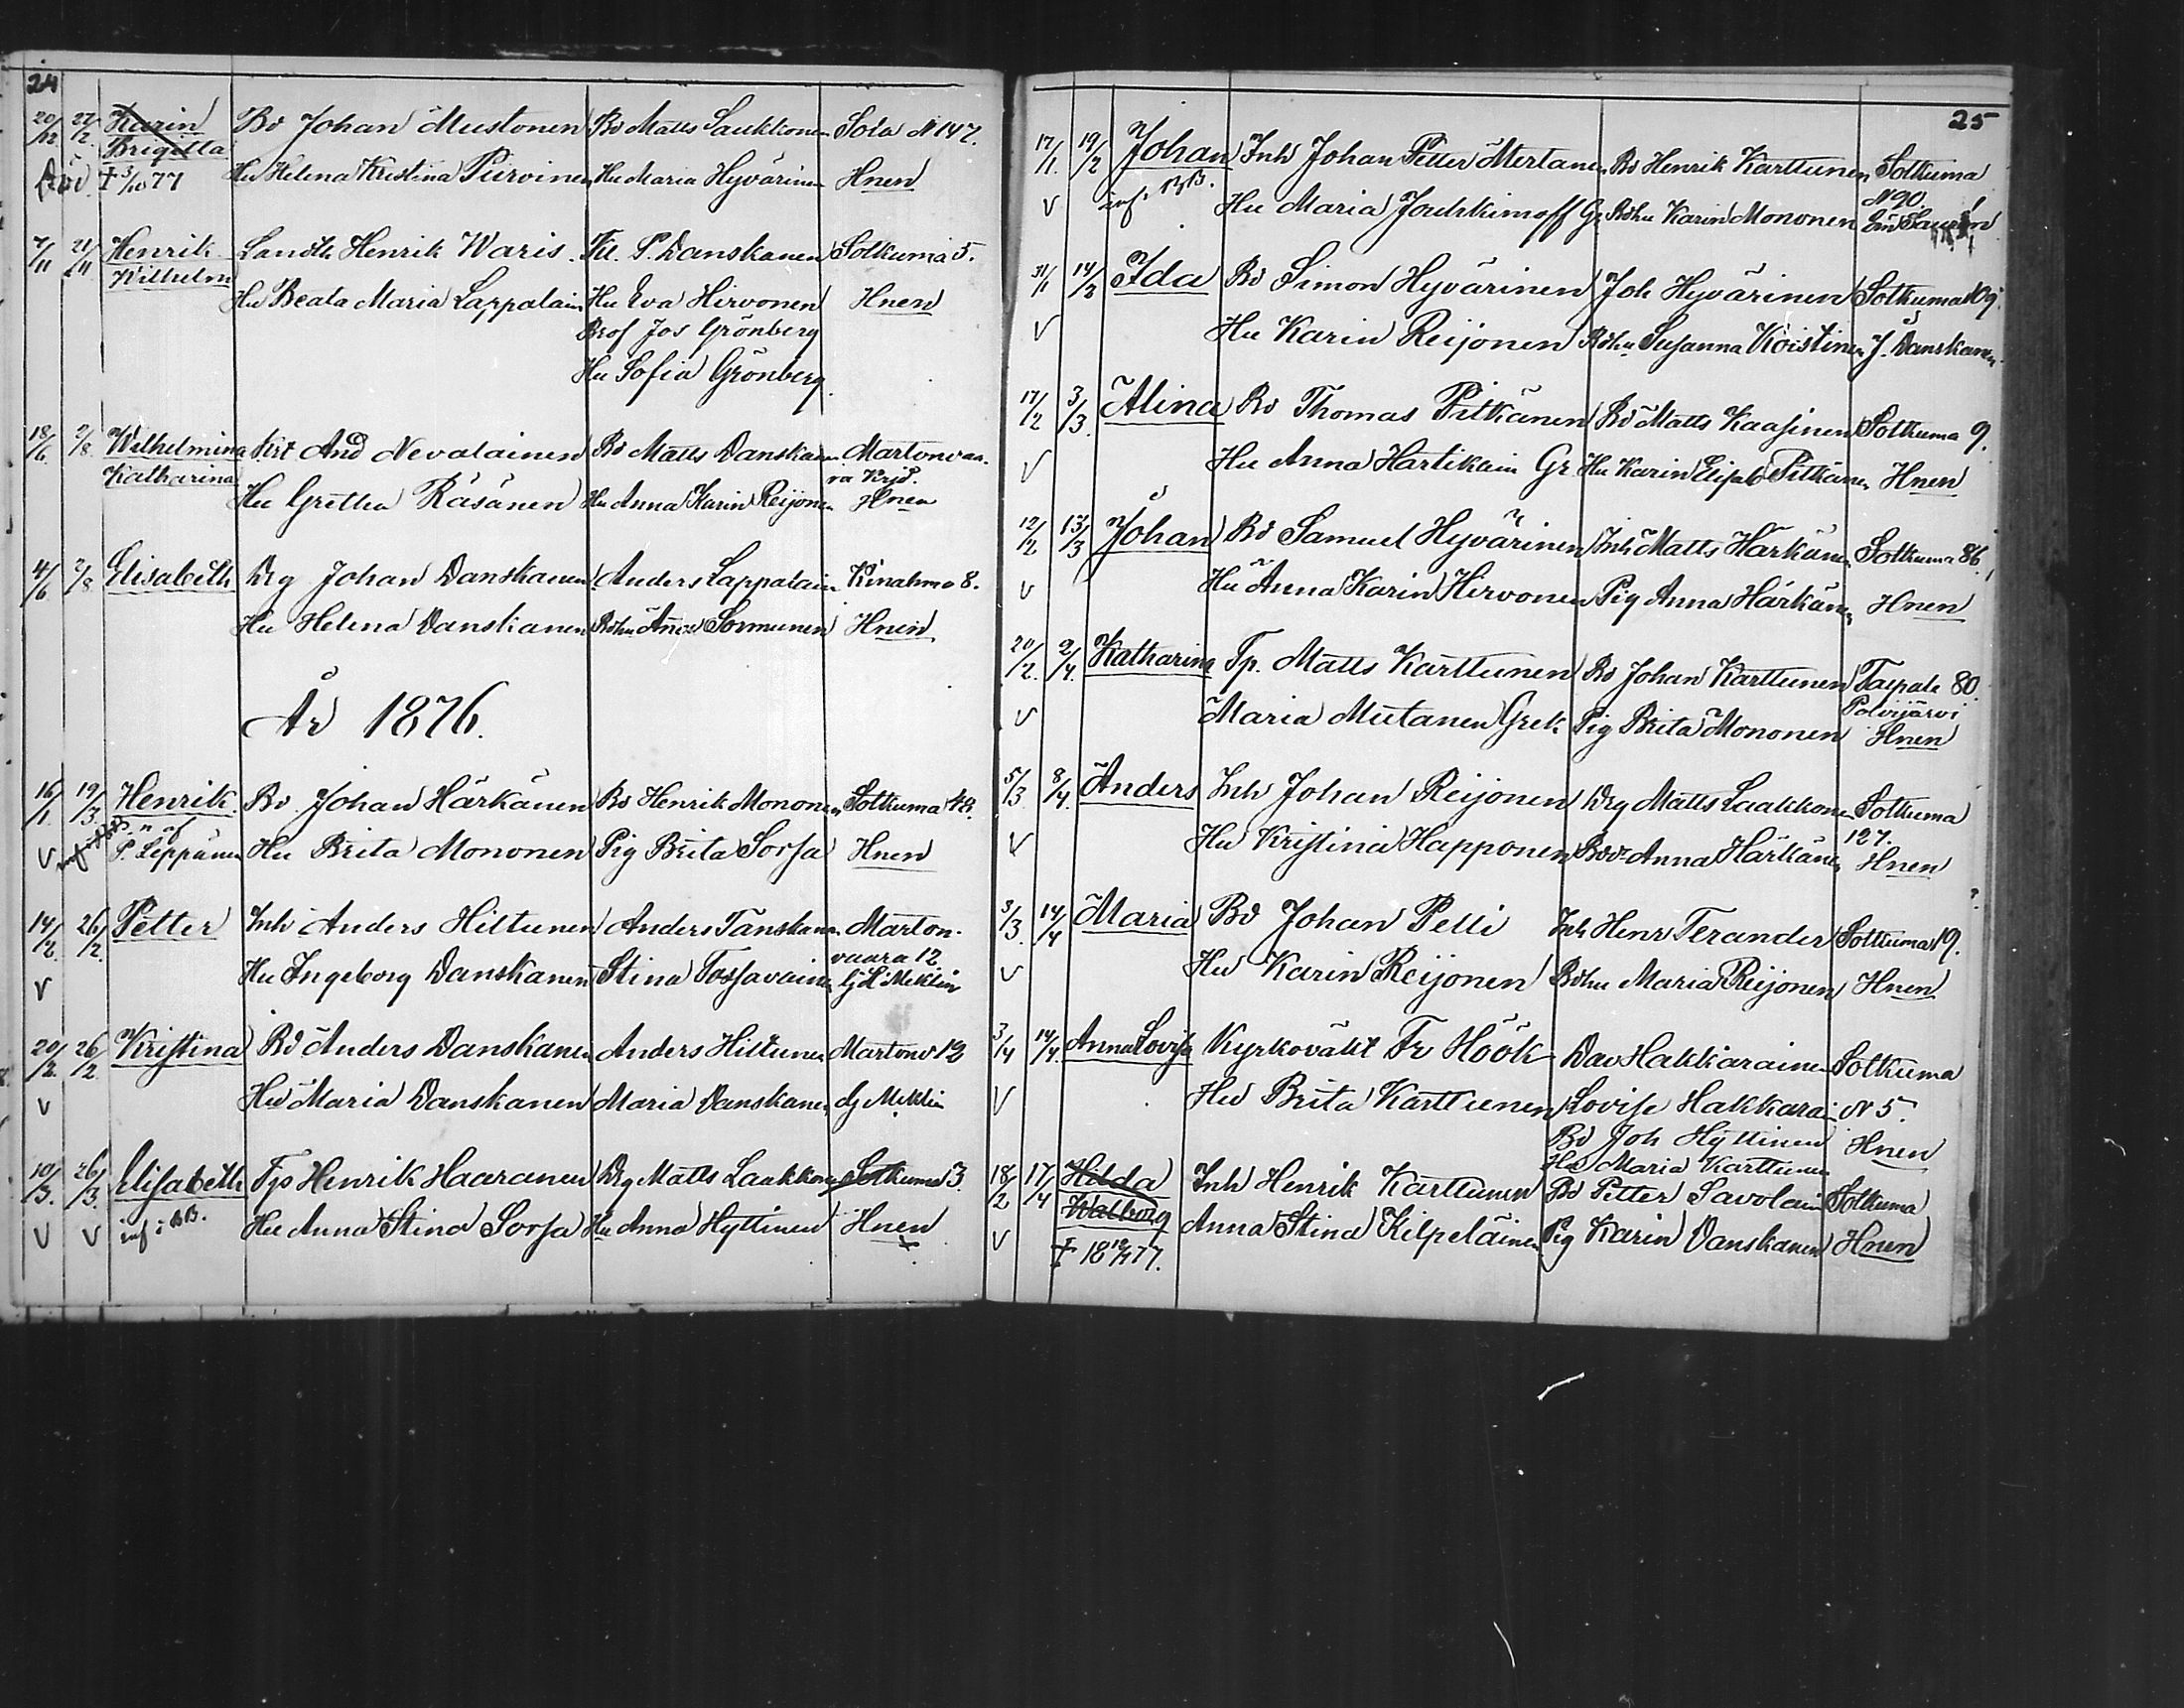 24
20/12 27/2 Karin Bd Johan Mustonen Bd Matts Saukkonen Sola N 147.
Brigitta
† 3/10 77 Hu Helena Kristina Piirvinen Hu Maria Hyvärinen Hnen
7/11 21/11 Henrik Landtb Henrik Waris. P. Danskanen Solkuma 5.
Wilhelm
Hu Beata Maria Lappalain Hu Eva Hirvonen Hnen
Brof Jos Grönberg
Hu Sofia Grönberg
18/6. 2/8. Wilhelmina Krt And Nevalainen Bd Matts Danskanen Martonvaa-
Katharina ra Krjd.
Hu Gretha Räsänen Hu Anna Karin Reijonen Hnen
4/6 2/8 Elisabeth Drg Johan Danskanen Anders Lappalain Kinahmo 8.
Hu Helena Danskanen Bdhu Anna Sormunen Hnen
År 1876.
16/1. 19/3 Henrik Bd. Johan Härkänen Bd Henrik Mononen Solkuma 48.
V P. Leppänen Hu Brita Mononen Pig Brita Sorsa Hnen
14/2. 26/2. Petter Inh Anders Hiltunen Anders Tanskanen Marton-
vaara 12
V Hu Ingeborg Danskanen Stina Tossavainen Meklin
20/2. 26/2 Kristina Bd Anders Danskanen Anders Hiltunen Martonv 12
V Hu Maria Danskanen Maria Danskanen Meklin
10/3. 26/3. Elisabeth Tp Henrik Haaranen Drg Matts Laakkonen Solkuma 3.
V V inf i BB. Hu Anna Stina Sorsa Hu Anna Hyttinen Hnen
25
17/1. 19/2 Johan Inh Johan Petter Mertanen Bd Henrik Karttunen Solkuma
N 90.
V inf i BB. Hu Maria Jouhkimoff Gr. Bdhu Karin Mononen
31/1 14/2 Ida Bd Simon Hyvärinen Joh Hyvärinen Solkuma 109.
V Hu Karin Reijonen Bdhu Susanna Koistinen J. Danskanen.
17/2 3/3. Alina Bd Thomas Pitkänen Bd Matts Kaasinen Solkuma 9.
V Hu Anna Hartikain Gr Hu Karin Elisab Pitkänen Hnen
12/2 13/3 Johan Bd Samuel Hyvärinen Inh Matts Härkänen Solkuma 86.
V Hu Anna Karin Hirvonen Pig Anna Härkänen Hnen
20/2. 2/4. Katharina Tp. Matts Karttunen Bd Johan Karttunen Taipale 80.
Polvijärvi
V Maria Mutanen Grek Pig Brita Mononen Hnen
5/3 8/4. Anders Inh Johan Reijonen Drg Matts Laakkonen Solkuma
127.
V Hu Kristina Happonen Anna Härkänen Hnen
3/3. 14/4 Maria Bd Johan Pelli Inh Henr Terander Solkuma 19.
V Hu Karin Reijonen Bdhu Maria Reijonen Hnen
3/4 14/4. Anna Lovisa Kyrkovakt Fr Höök Dav Hakkarainen Solkuma
V Hu Brita Karttunen Lovisa Hakkarai N 5.
Bd Joh Hyttinen Hnen
Hu Maria Karttunen
18/2 17/4 Hilda Inh Henrik Karttunen Bd Petter Savolain Solkuma
Walborg
V Anna Stina Kilpeläinen Pig Karin Danskanen Hnen
† 18 77.